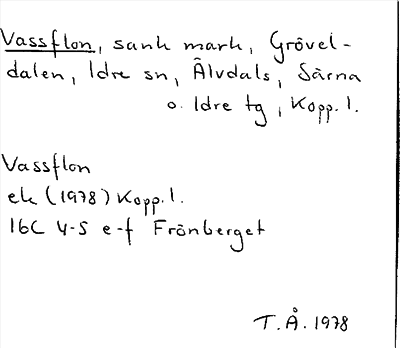 Vassflon, sank mark, Grövel-
dalen, Idre sn, Älvdals, Särna
o. Idre tg, Kopp. l.
Vassflon
ek (1978) Kopp. l.
16C 4-5 e-f Frönberget
T. Å. 1978